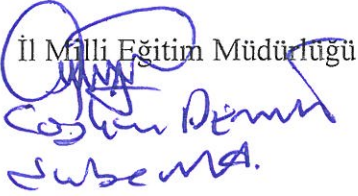 İl Milli Eğitim Müdürlüğü
Coşkun Demir
Şube Md.